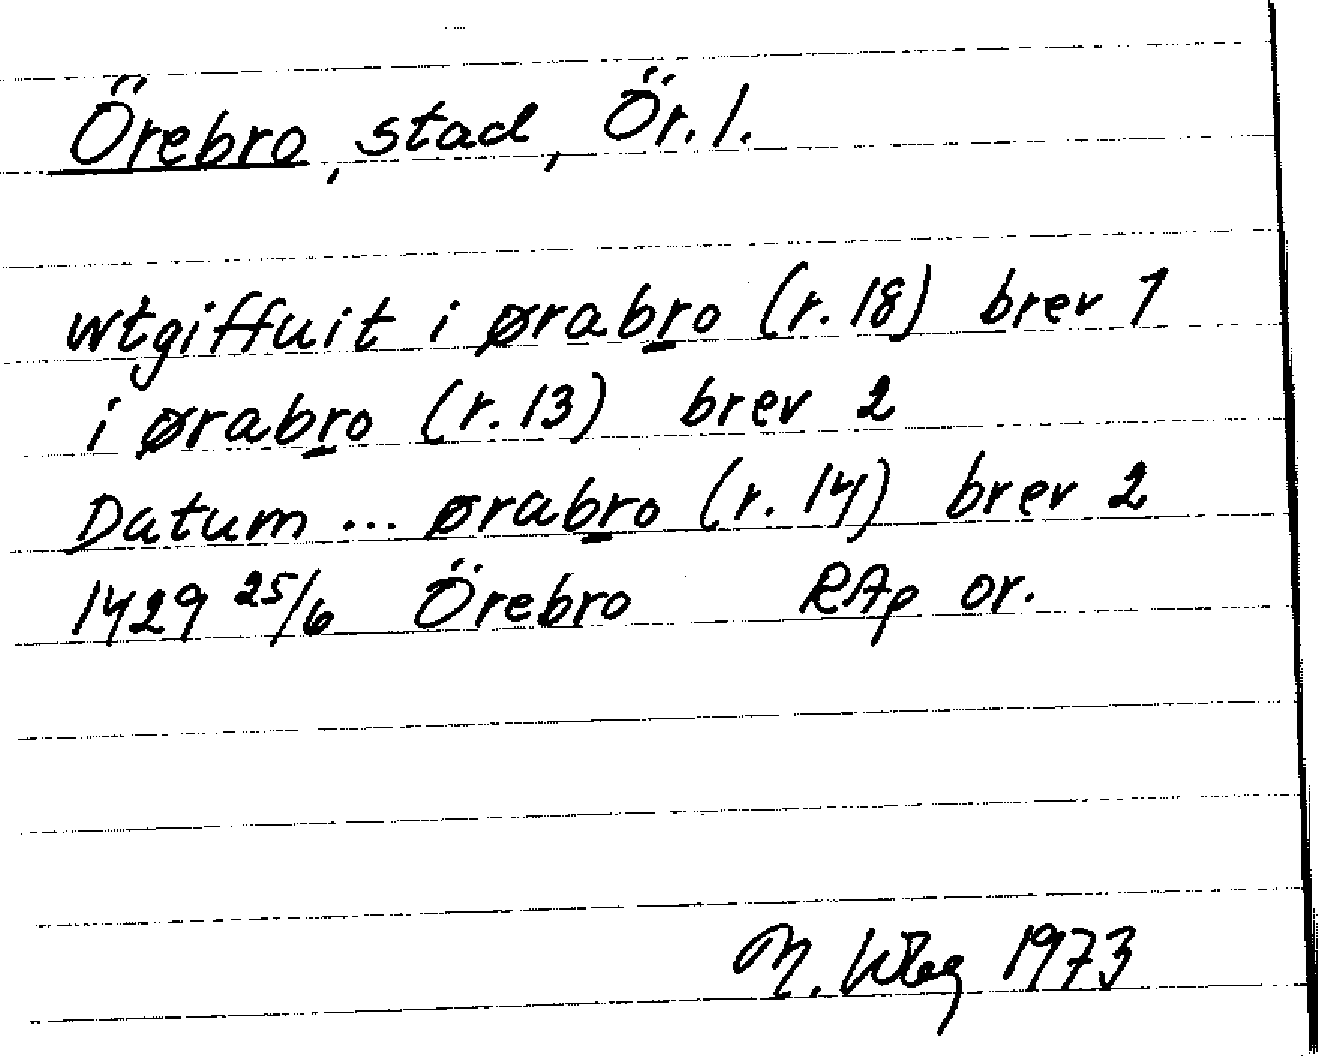 Örebro, stad, Ör. l.
wtgiffuit i ørabro (r. 18) brev 1
i ørabro (r. 13) brev 2
Datum ... ørabro (r. 14) brev 2
1429 25/6 Örebro RAp or.
1973